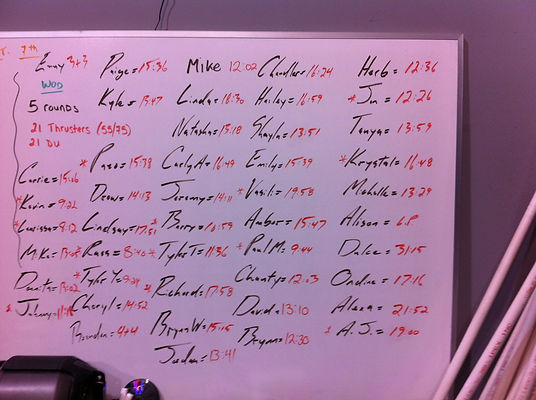 7th
Emmy 3+3
WOD
5 rounds
21 Thrusters (55/75)
21 DU
Carrie = 15:06
*Kevin = 9:22
Danita = 13:02
Paige = 15:36
Kyle = 13:47
*Paso = 15:38
Drew = 14:13
Lindsay = 17:51
*Ross = 8:40
*Tyler Y = 9:24
Cheryl = 14:52
Brandon = 4+4
Mike 12:02
Linda = 16:30
Natasha = 13:18
Carly A = 16:49
Jeremy = 14:11
*Barry = 18:59
*Tyler T = 11:36
*Richard = 17:58
Bryan W = 15:15
Jordan = 13:41
Chandler = 16:24
Hailey = 16:59
Shayla = 13:51
Emily = 15:39
*Vasili = 19:58
Amber = 15:47
*Paul M = 9:44
Chanty = 12:03
David = 13:10
Brynn = 12:30
Herb = 12:36
*Jin = 12:26
Tanya = 13:59
*Krystal = 16:48
Michelle = 13:29
Alison =
Dulce = 31:15
Ondine = 17:16
Alana = 21:52
A.J. = 19:00